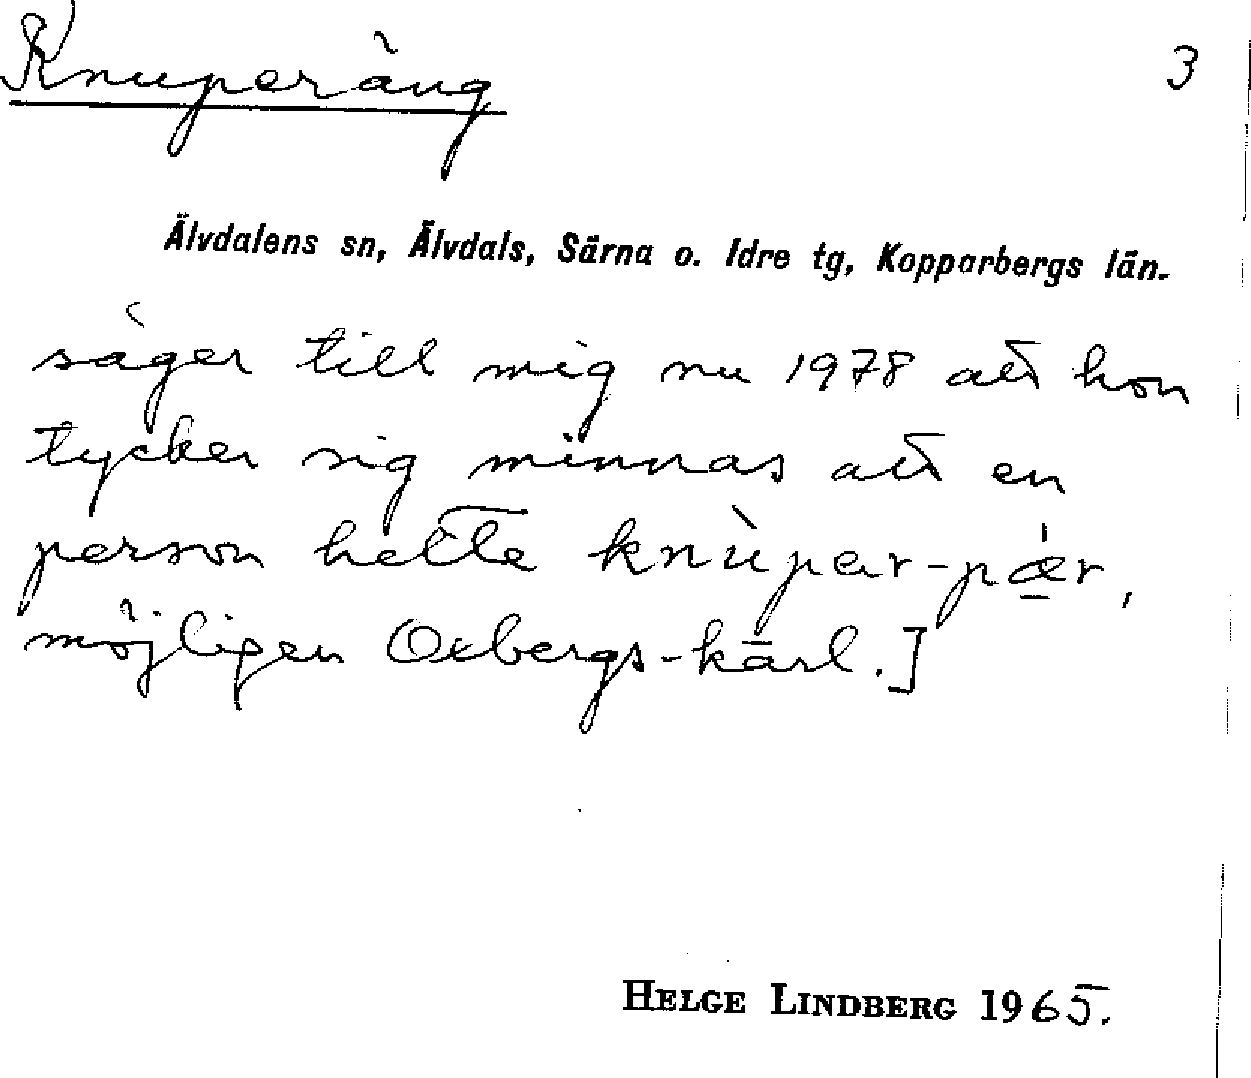 Knuperäng 3
Älvdalens sn, Älvdals, Särna o. Idre tg, Kopparbergs län.
säger till mig nu 1978 att hon
tycker sig minnas att en
person hette knùpar-pæ̲r,
möjligen Oxbergs-kārl.]
HELGE LINDBERG 1965.